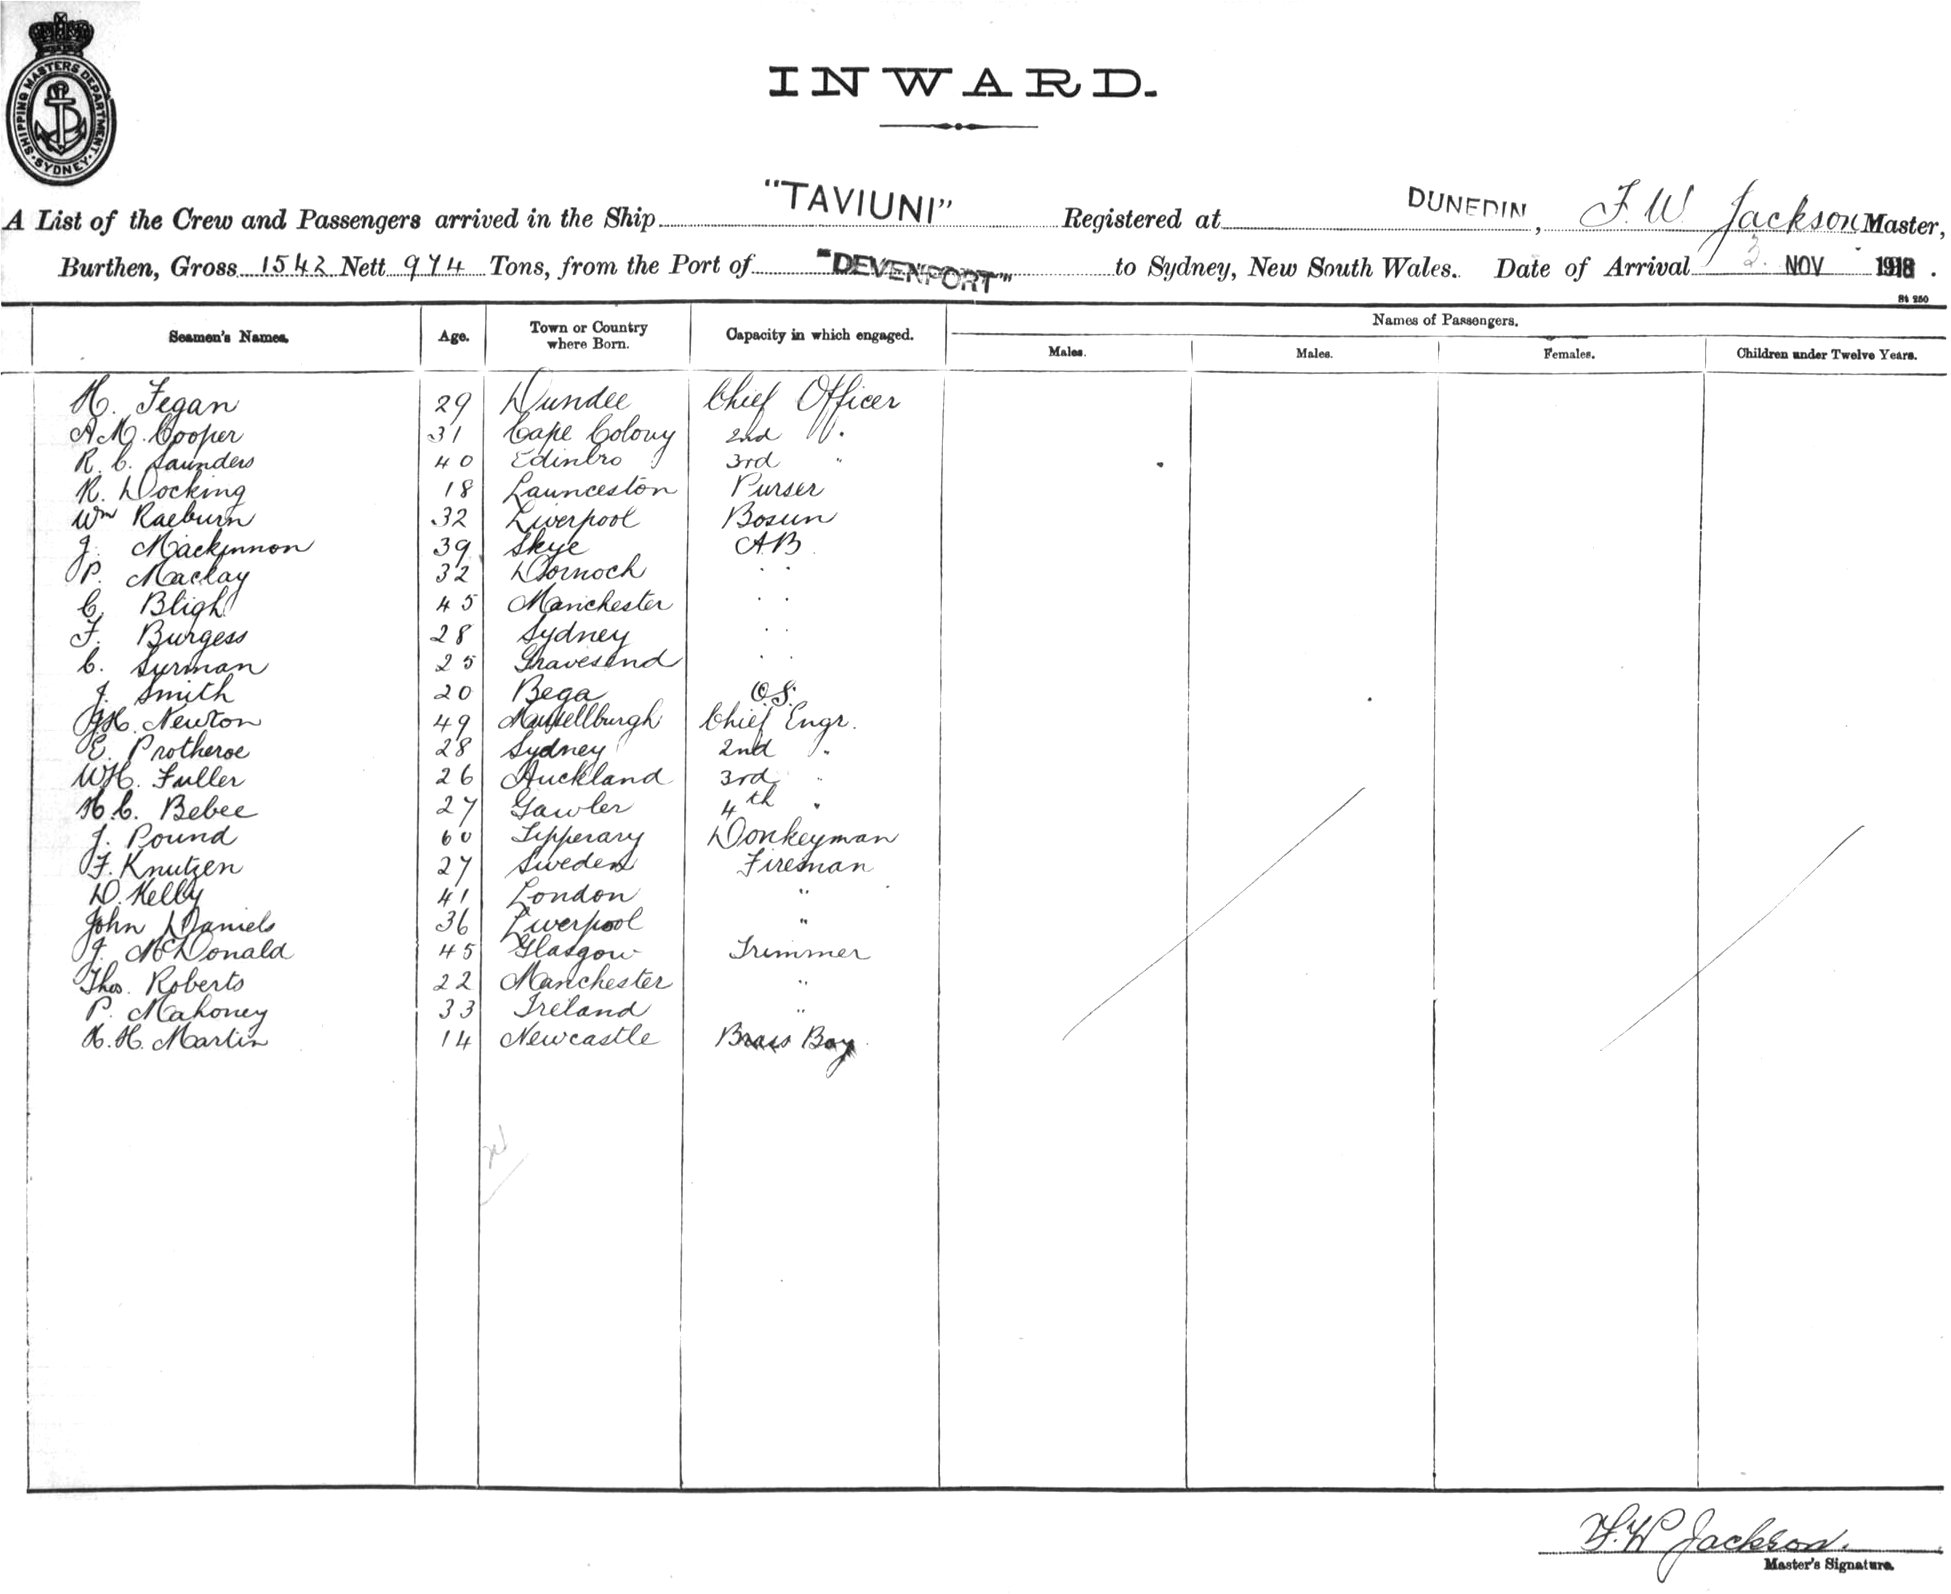 SHIPPING MASTERS DEPARTMENT. SYDNEY.
INWARD.
A List of the Crew and Passengers arrived in the Ship "TAVIUNI" Registered at DUNEDIN, F. W. Jackson Master,
Burthen, Gross 1542 Nett 974 Tons, from the Port of "DEVENPORT" to Sydney, New South Wales. Date of Arrival 3. NOV 1918.
St 250
Seamen's Names. Age. Town or Country where Born. Capacity in which engaged. Names of Passengers.
Males. Males. Females. Children under Twelve Years.
H. Fegan 29 Dundee Chief Officer
A M. Cooper 31 Cape Colony 2nd "
R. C. Saunders 40 Edinbro 3rd "
R. Docking 18 Launceston Purser
Wm Raeburn 32 Liverpool Bosun
J. Mackinnon 39 Skye A.B.
P. Mackay 32 Dornoch " "
C. Bligh 45 Manchester " "
F. Burgess 28 Sydney " "
C. Surman 25 Gravesend " "
J. Smith 20 Bega O.S.
J.H. Newton 49 Mussellburgh Chief Engr.
E. Protheroe 28 Sydney 2nd "
W.H. Fuller 26 Auckland 3rd "
H.C. Bebee 27 Gawler 4th "
J. Pound 60 Tipperary Donkeyman
F. Knutzen 27 Sweden Fireman
D. Kelly 41 London "
John Daniels 36 Liverpool "
J. McDonald 45 Glasgow Trimmer
Thos. Roberts 22 Manchester "
P. Mahoney 33 Ireland "
H. H. Martin 14 Newcastle Brass Boy
F. W. Jackson.
Master's Signature.